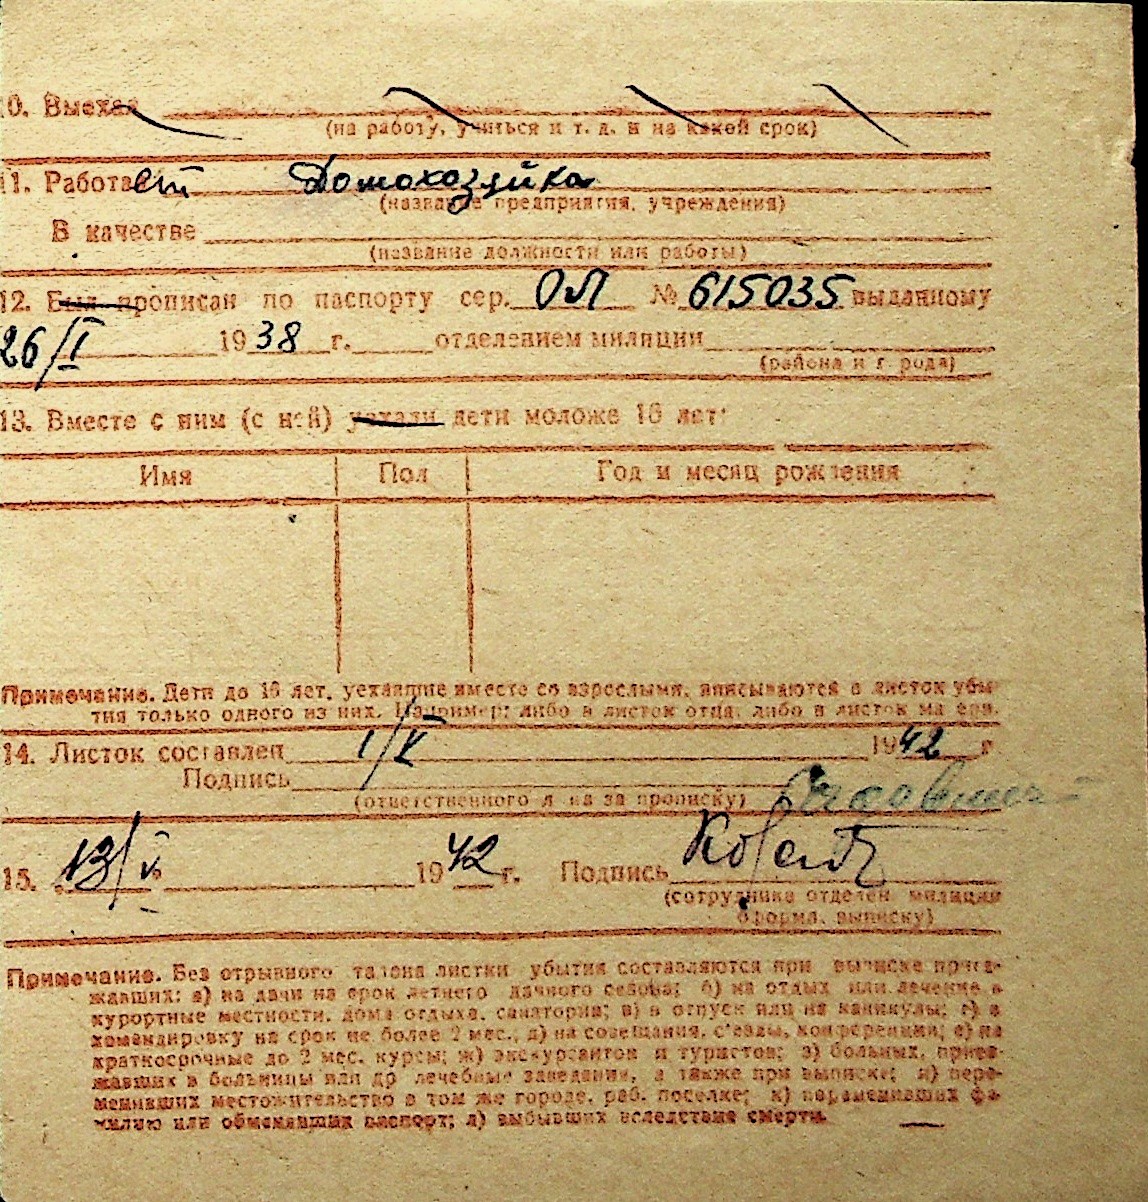 10. Выехал
(на работу, учиться и т. д. и на какой срок)
11. Работает Домохозяйка
(название предприятия, учреждения)
В качестве
(название должности или работы)
12. Был прописан по паспорту сер. ОЛ № 615035 выданному
26/I 1938 г. отделением милиции
(района и города)
13. Вместе с ним (с ней) уехали дети моложе 16 лет:
Имя Пол Год и месяц рождения
Примечание. Дети до 16 лет, уехавшие вместе со взрослыми, вписываются в листок убы-
тия только одного из них. Например: либо в листок отца, либо в листок матери.
14. Листок составлен 1/V 1942 г
Подпись
(ответственного лица за прописку)
15. 13/V 1942 г. Подпись
(сотрудника отделен. милиции
оформл. выписку)
Примечание. Без отрывного талона листки убытия составляются при выписке приез-
жавших: а) на дачи на срок летнего дачного сезона; б) на отдых или лечение в
курортные местности, дома отдыха, санатории; в) в отпуск или на каникулы; г) в
командировку на срок не более 2 мес.; д) на совещания, с'езды, конференции; е) на
краткосрочные до 2 мес. курсы; ж) экскурсантов и туристов; з) больных, приез-
жавших в больницы или др лечебные заведения, а также при выписке; и) пере-
менивших местожительство в том же городе, раб. поселке; к) переменивших фа-
милию или обменявших паспорт; л) выбывших вследствие смерти.